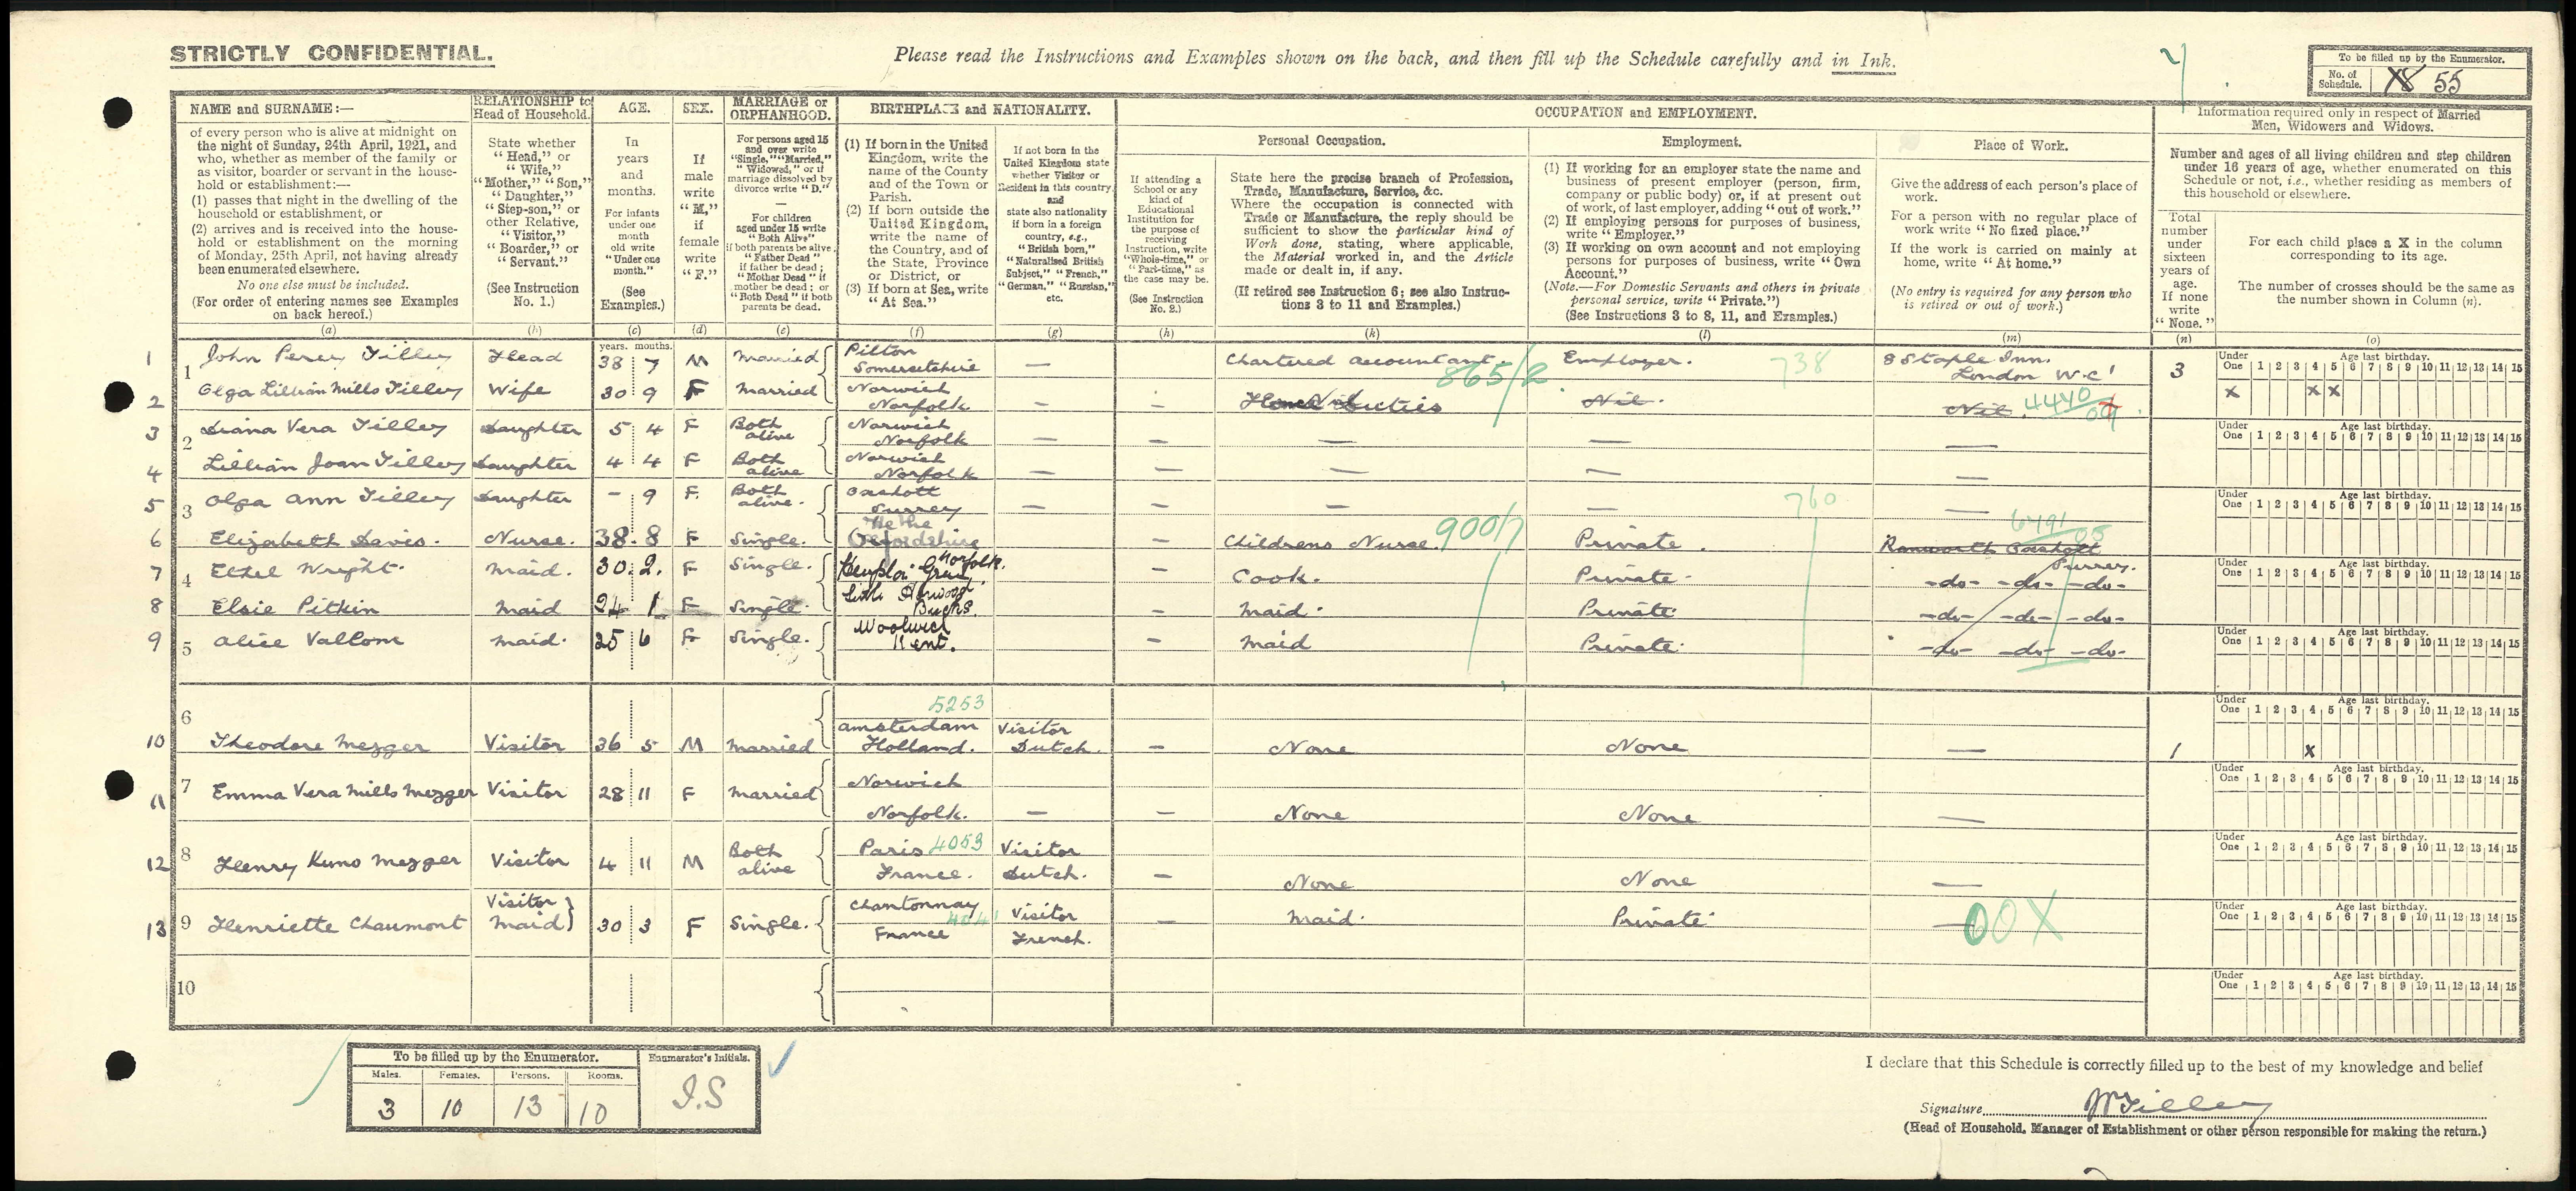 STRICTLY CONFIDENTIAL.
Please read the Instructions and Examples shown on the back, and then fill up the Schedule carefully and in Ink.
To be filled up by the Enumerator.
No. of Schedule. 55
NAME and SURNAME:—
of every person who is alive at midnight on
the night of Sunday, 24th April, 1921, and
who, whether as member of the family or
as visitor, boarder or servant in the house-
hold or establishment:—
(1) passes that night in the dwelling of the
household or establishment, or
(2) arrives and is received into the house-
hold or establishment on the morning
of Monday, 25th April, not having already
been enumerated elsewhere.
No one else must be included.
(For order of entering names see Examples
on back hereof.)
(a)
RELATIONSHIP to
Head of Household.
State whether
"Head," or
"Wife,"
"Mother," "Son,"
"Daughter,"
"Step-son," or
other Relative,
"Visitor,"
"Boarder," or
"Servant."
(See Instruction
No. 1.)
(b)
AGE.
In
years
and
months.
For infants
under one
month
old write
"Under one
month."
(See
Examples.)
(c)
SEX.
If
male
write
"M,"
if
female
write
"F."
(d)
MARRIAGE or
ORPHANHOOD.
For persons aged 15
and over write
"Single," "Married,"
"Widowed," or if
marriage dissolved by
divorce write "D."
—
For children
aged under 15 write
"Both Alive"
if both parents be alive
"Father Dead"
if father be dead;
"Mother Dead" if
mother be dead; or
"Both Dead" if both
parents be dead.
(e)
BIRTHPLACE and NATIONALITY.
(1) If born in the United
Kingdom, write the
name of the County
and of the Town or
Parish.
(2) If born outside the
United Kingdom,
write the name of
the Country, and of
the State, Province
or District, or
(3) If born at Sea, write
"At Sea."
(f)
If not born in the
United Kingdom state
whether Visitor or
Resident in this country
and
state also nationality
if born in a foreign
country, e.g.,
"British born,"
"Naturalised British
Subject," "French,"
"German," "Russian,"
etc.
(g)
OCCUPATION and EMPLOYMENT.
Personal Occupation.
If attending a
School or any
kind of
Educational
Institution for
the purpose of
receiving
Instruction, write
"Whole-time," or
"Part-time," as
the case may be.
(See Instruction
No. 2.)
(h)
State here the precise branch of Profession,
Trade, Manufacture, Service, &c.
Where the occupation is connected with
Trade or Manufacture, the reply should be
sufficient to show the particular kind of
Work done, stating, where applicable,
the Material worked in, and the Article
made or dealt in, if any.
(If retired see Instruction 6; see also Instruc-
tions 3 to 11 and Examples.)
(k)
Employment.
(1) If working for an employer state the name and
business of present employer (person, firm,
company or public body) or, if at present out
of work, of last employer, adding "out of work."
(2) If employing persons for purposes of business,
write "Employer."
(3) If working on own account and not employing
persons for purposes of business, write "Own
Account."
(Note.—For Domestic Servants and others in private
personal service, write "Private.")
(See Instructions 3 to 8, 11, and Examples.)
(l)
Place of Work.
Give the address of each person's place of
work.
For a person with no regular place of
work write "No fixed place."
If the work is carried on mainly at
home, write "At home."
(No entry is required for any person who
is retired or out of work.)
(m)
Information required only in respect of Married
Men, Widowers and Widows.
Number and ages of all living children and step children
under 16 years of age, whether enumerated on this
Schedule or not, i.e., whether residing as members of
this household or elsewhere.
Total
number
under
sixteen
years of
age.
If none
write
"None."
(n)
For each child place a X in the column
corresponding to its age.
The number of crosses should be the same as
the number shown in Column (n).
(o)
years. months.
Under One Age last birthday. 1 2 3 4 5 6 7 8 9 10 11 12 13 14 15
1 John Percy Tilley Head 38 7 M Married Pilton Somersetshire — Chartered accountant 865/2 Employer. 738 8 Staple Inn. London W.C1 3 X X X
2 Olga Lillian Mills Tilley Wife 30 9 F Married Norwich Norfolk — — Home duties Nil Nil 4440
3 Diana Vera Tilley Daughter 5 4 F Both alive Norwich Norfolk — — — — —
4 Lillian Joan Tilley Daughter 4 4 F Both alive Norwich Norfolk — — — — —
5 Olga Ann Tilley Daughter – 9 F. Both alive. Oxshott Surrey — — — — —
6 Elizabeth Davis. Nurse. 38. 8 F Single. Hethe Oxfordshire — Childrens Nurse. 900/7 Private. 760 Ranworth Oxshott Surrey. 6491
7 Ethel Wright. Maid. 30. 2. F Single. Norfolk. — Cook. Private. -do- -do- -do-
8 Elsie Pitkin Maid 24 1 F Single. Little Horwood Bucks. — Maid. Private. -do- -do- -do-
9 Alice Vallom Maid. 25 6 F Single. Woolwich Kent. — Maid Private. -do- -do- -do-
10 Theodore Mezger Visitor 36 5 M Married 5253 Amsterdam Holland. Visitor Dutch. — None None — 1 X
11 Emma Vera Mills Mezger Visitor 28 11 F Married Norwich Norfolk. — — None None —
12 Henry Kuno Mezger Visitor 4 11 M Both alive Paris 4053 France. Visitor Dutch. — None None —
13 Henriette Chaumont Visitor Maid 30 3 F Single. Chantonnay France Visitor French. — Maid. Private. — 00X
10
To be filled up by the Enumerator.
Males. Females. Persons. Rooms.
3 10 13 10
Enumerator's Initials.
I.S
I declare that this Schedule is correctly filled up to the best of my knowledge and belief
Signature JPTilley
(Head of Household, Manager of Establishment or other person responsible for making the return.)